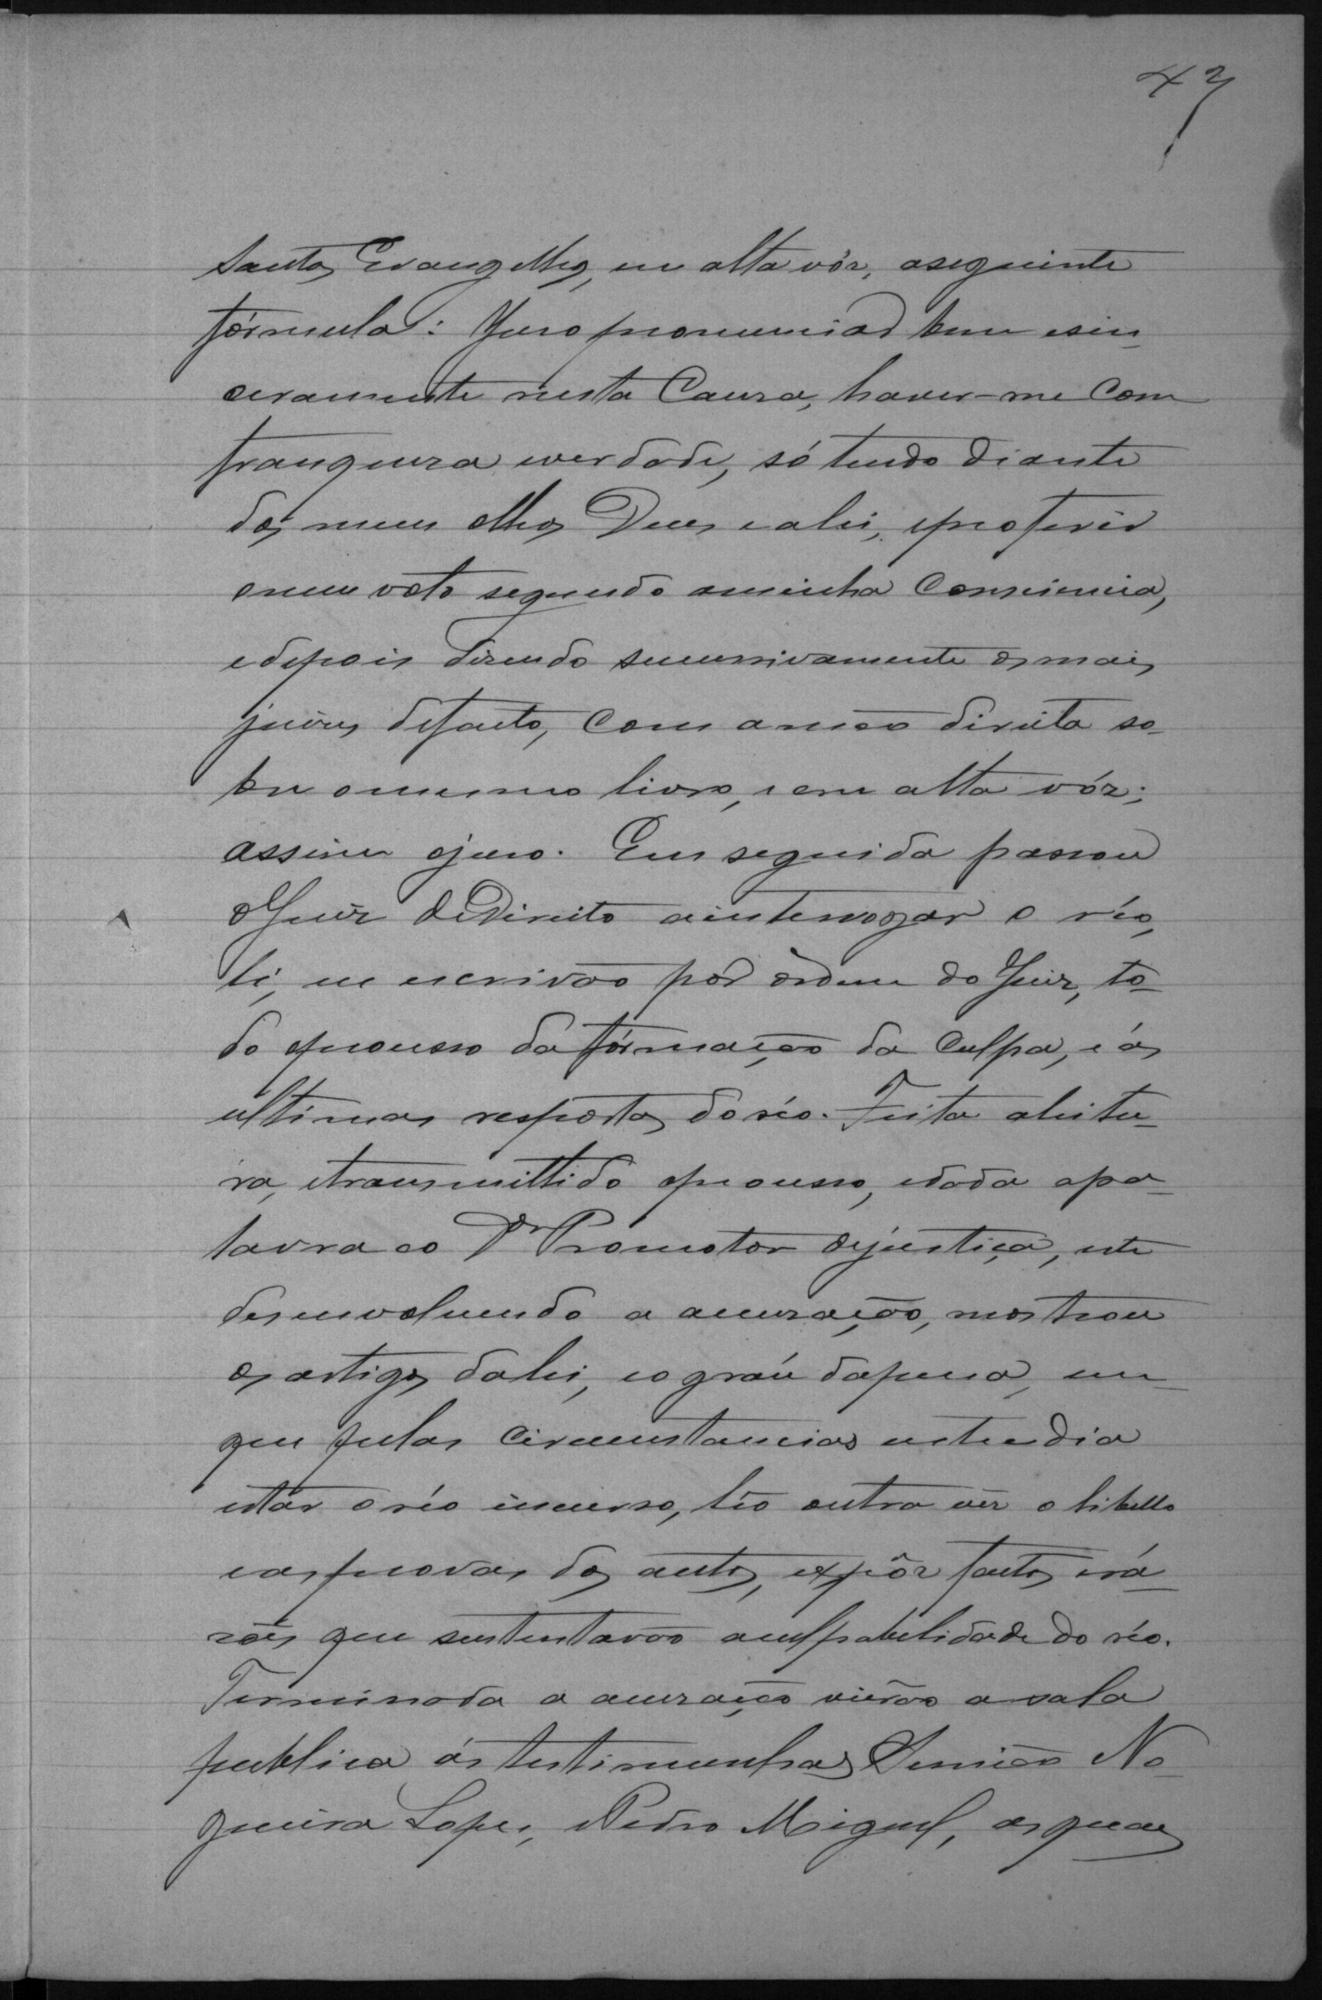 47
Santos Evangelhos, em alta vóz, aseguinte
fórmula: Juro pronunciar bem esin_
ceramente nesta Causa, haver-me com
franqueza everdade, só tendo diante
dos meus olhos Deus ealei, eproferir
omeu voto segundo aminha Consciencia,
edepois dizendo sucessivamente os mais
juizes defacto, com amão direita so_
bre omesmo livro, e em alta vóz;
assim ojuro. Em seguida passou
oJuiz deDireito ainterrogar o réo,
li, eu escrivão por órdem do Juiz, to_
do oprocesso da fórmação da Culpa, e ás
ultimas respostas do réo. Feita aleitu_
ra, etransmittido oprocesso, edada apa_
lavra ao Dr Promotor dejustiça, este
desenvolvendo a accuzação, mostrou
os artigos dalei, eo gráu dapena, em_
que pelas circumstancias entendia
estár o réo incurso, léo outra vez o libello
easprovas dos autos, expôz factos erá_
zões que sustentavão aculpabilidade do réo.
Terminada a accuzação vierão a sala
publica ás testimunhas Simião No_
gueira Lopes, ePedro Miguel, as quaes